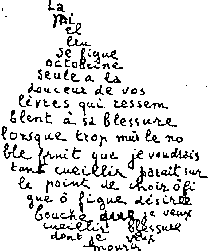 La
fi
el
leu
se figue
octobrine
seule a la
douceur de vos
lèvres qui ressem
blent à sa blessure
lorsque trop mûr le no
ble fruit que je voudrais
tant cueillir paraît sur
le point de choir ô fi
gue ô figue désirée
bouche que je veux
cueillir blessure
dont je veux
mourir